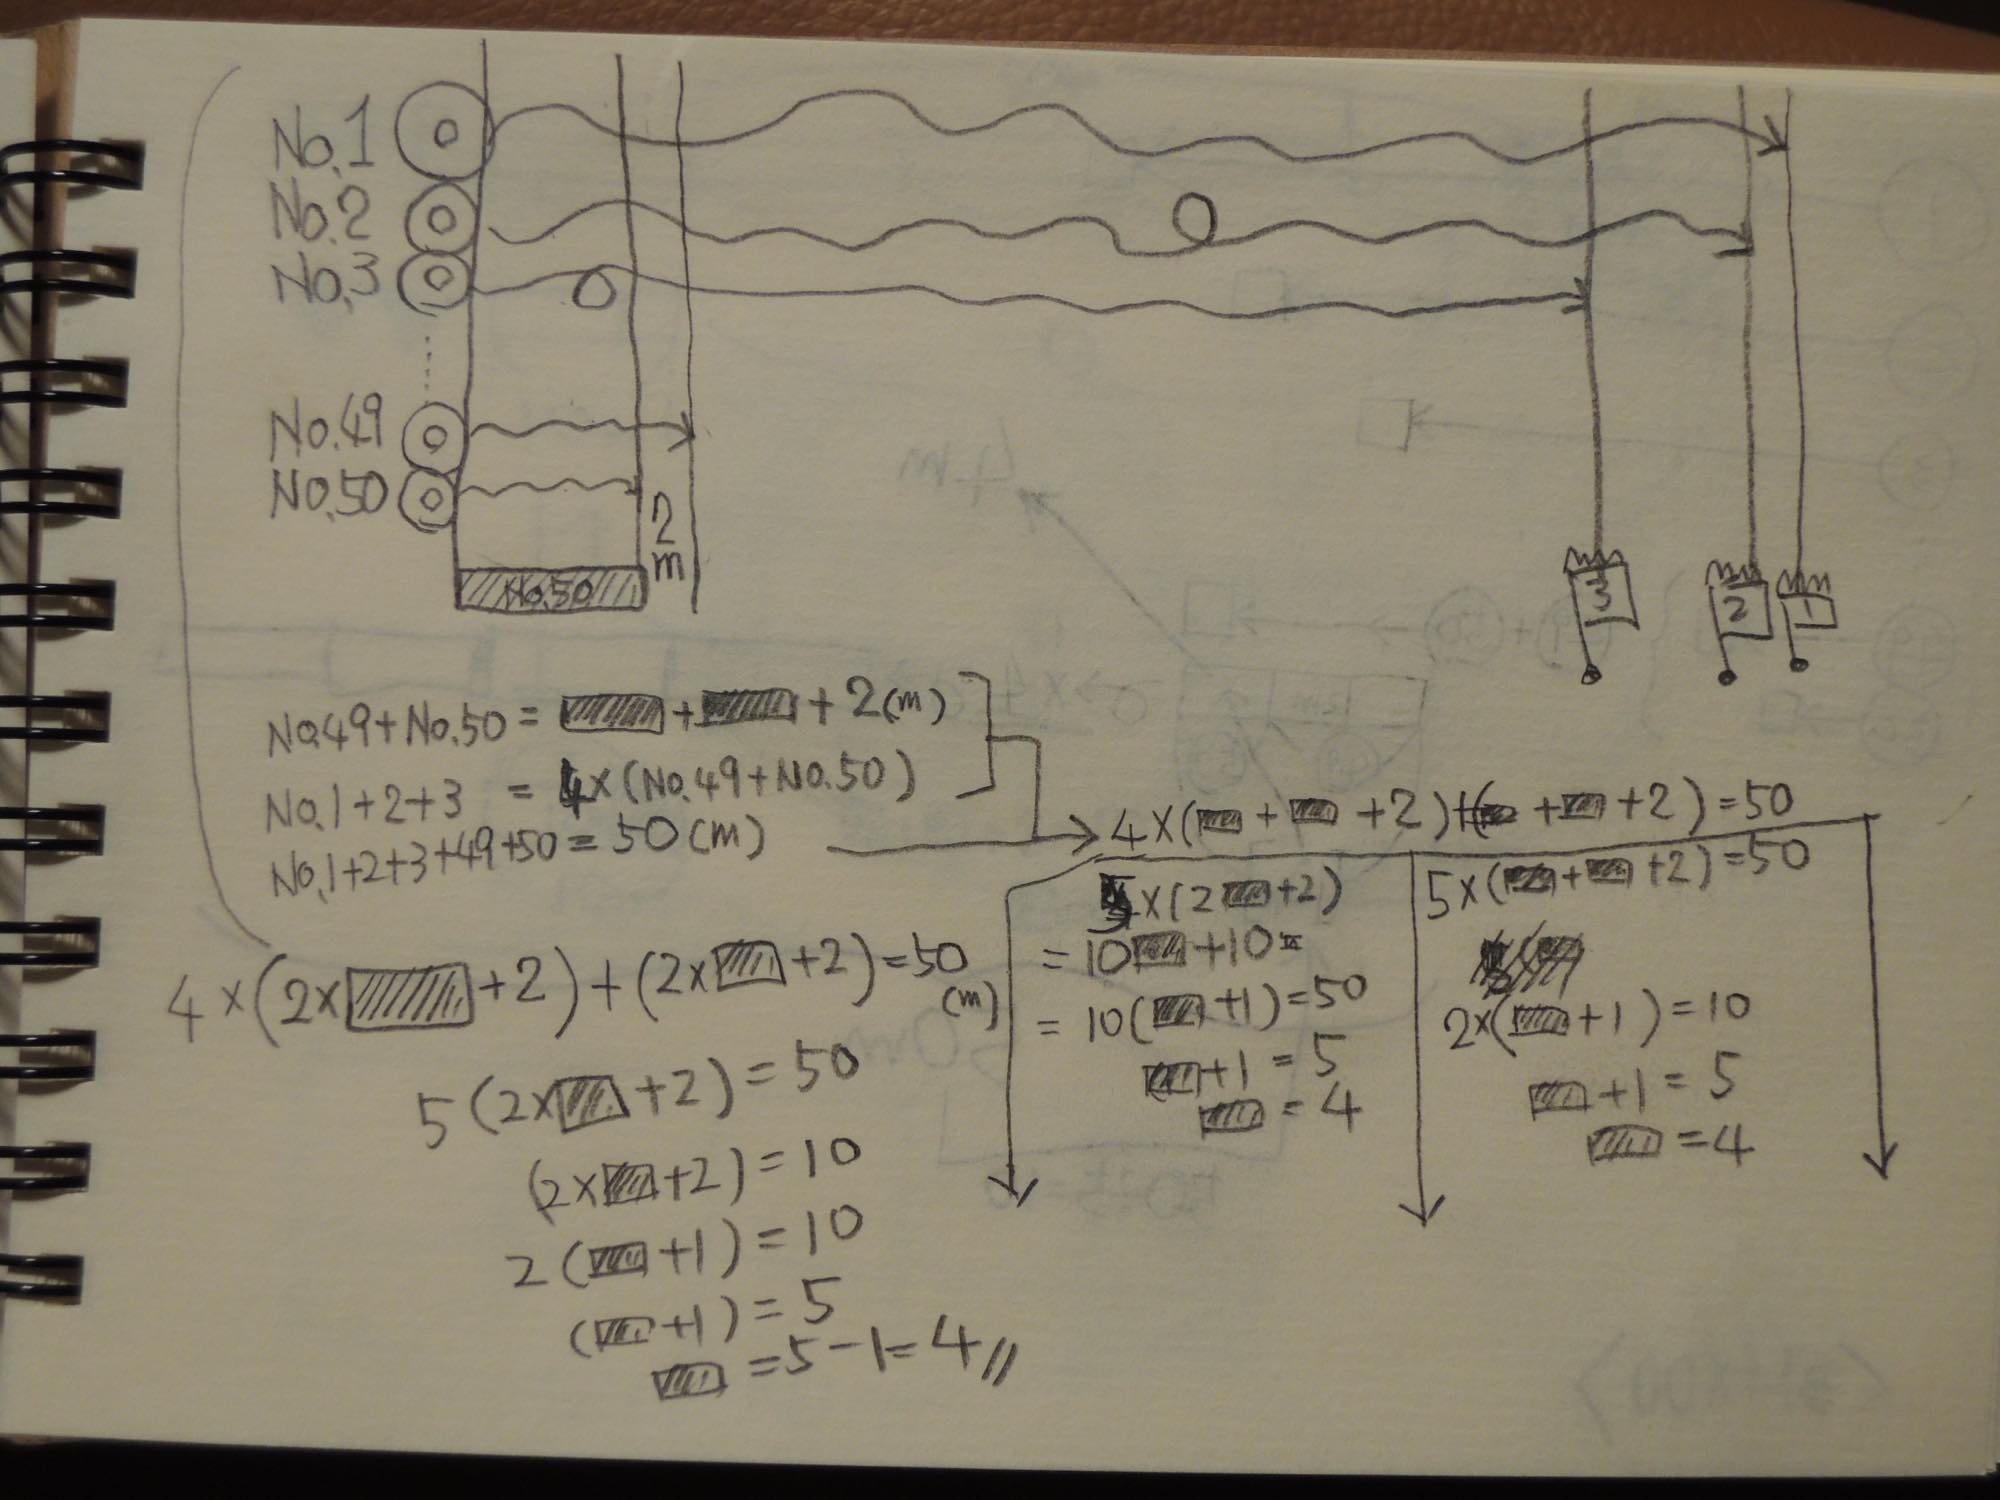 No.1
No.2
No.3
No.49
No.50
2
m
No.50
3
2
1
No.49+No.50 = ▨+▨+2(m)
No.1+2+3 = 4×(No.49+No.50)
No.1+2+3+49+50=50(m)
4×(▨+▨+2)+(▨+▨+2)=50
4×(2×▨+2)+(2×▨+2)=50
(m)
5(2×▨+2)=50
(2×▨+2)=10
2(▨+1)=10
(▨+1)=5
▨=5-1=4
5×(2▨+2)
=10▨+10=
=10(▨+1)=50
▨+1=5
▨=4
5×(▨+▨+2)=50
2×(▨+1)=10
▨+1=5
▨=4